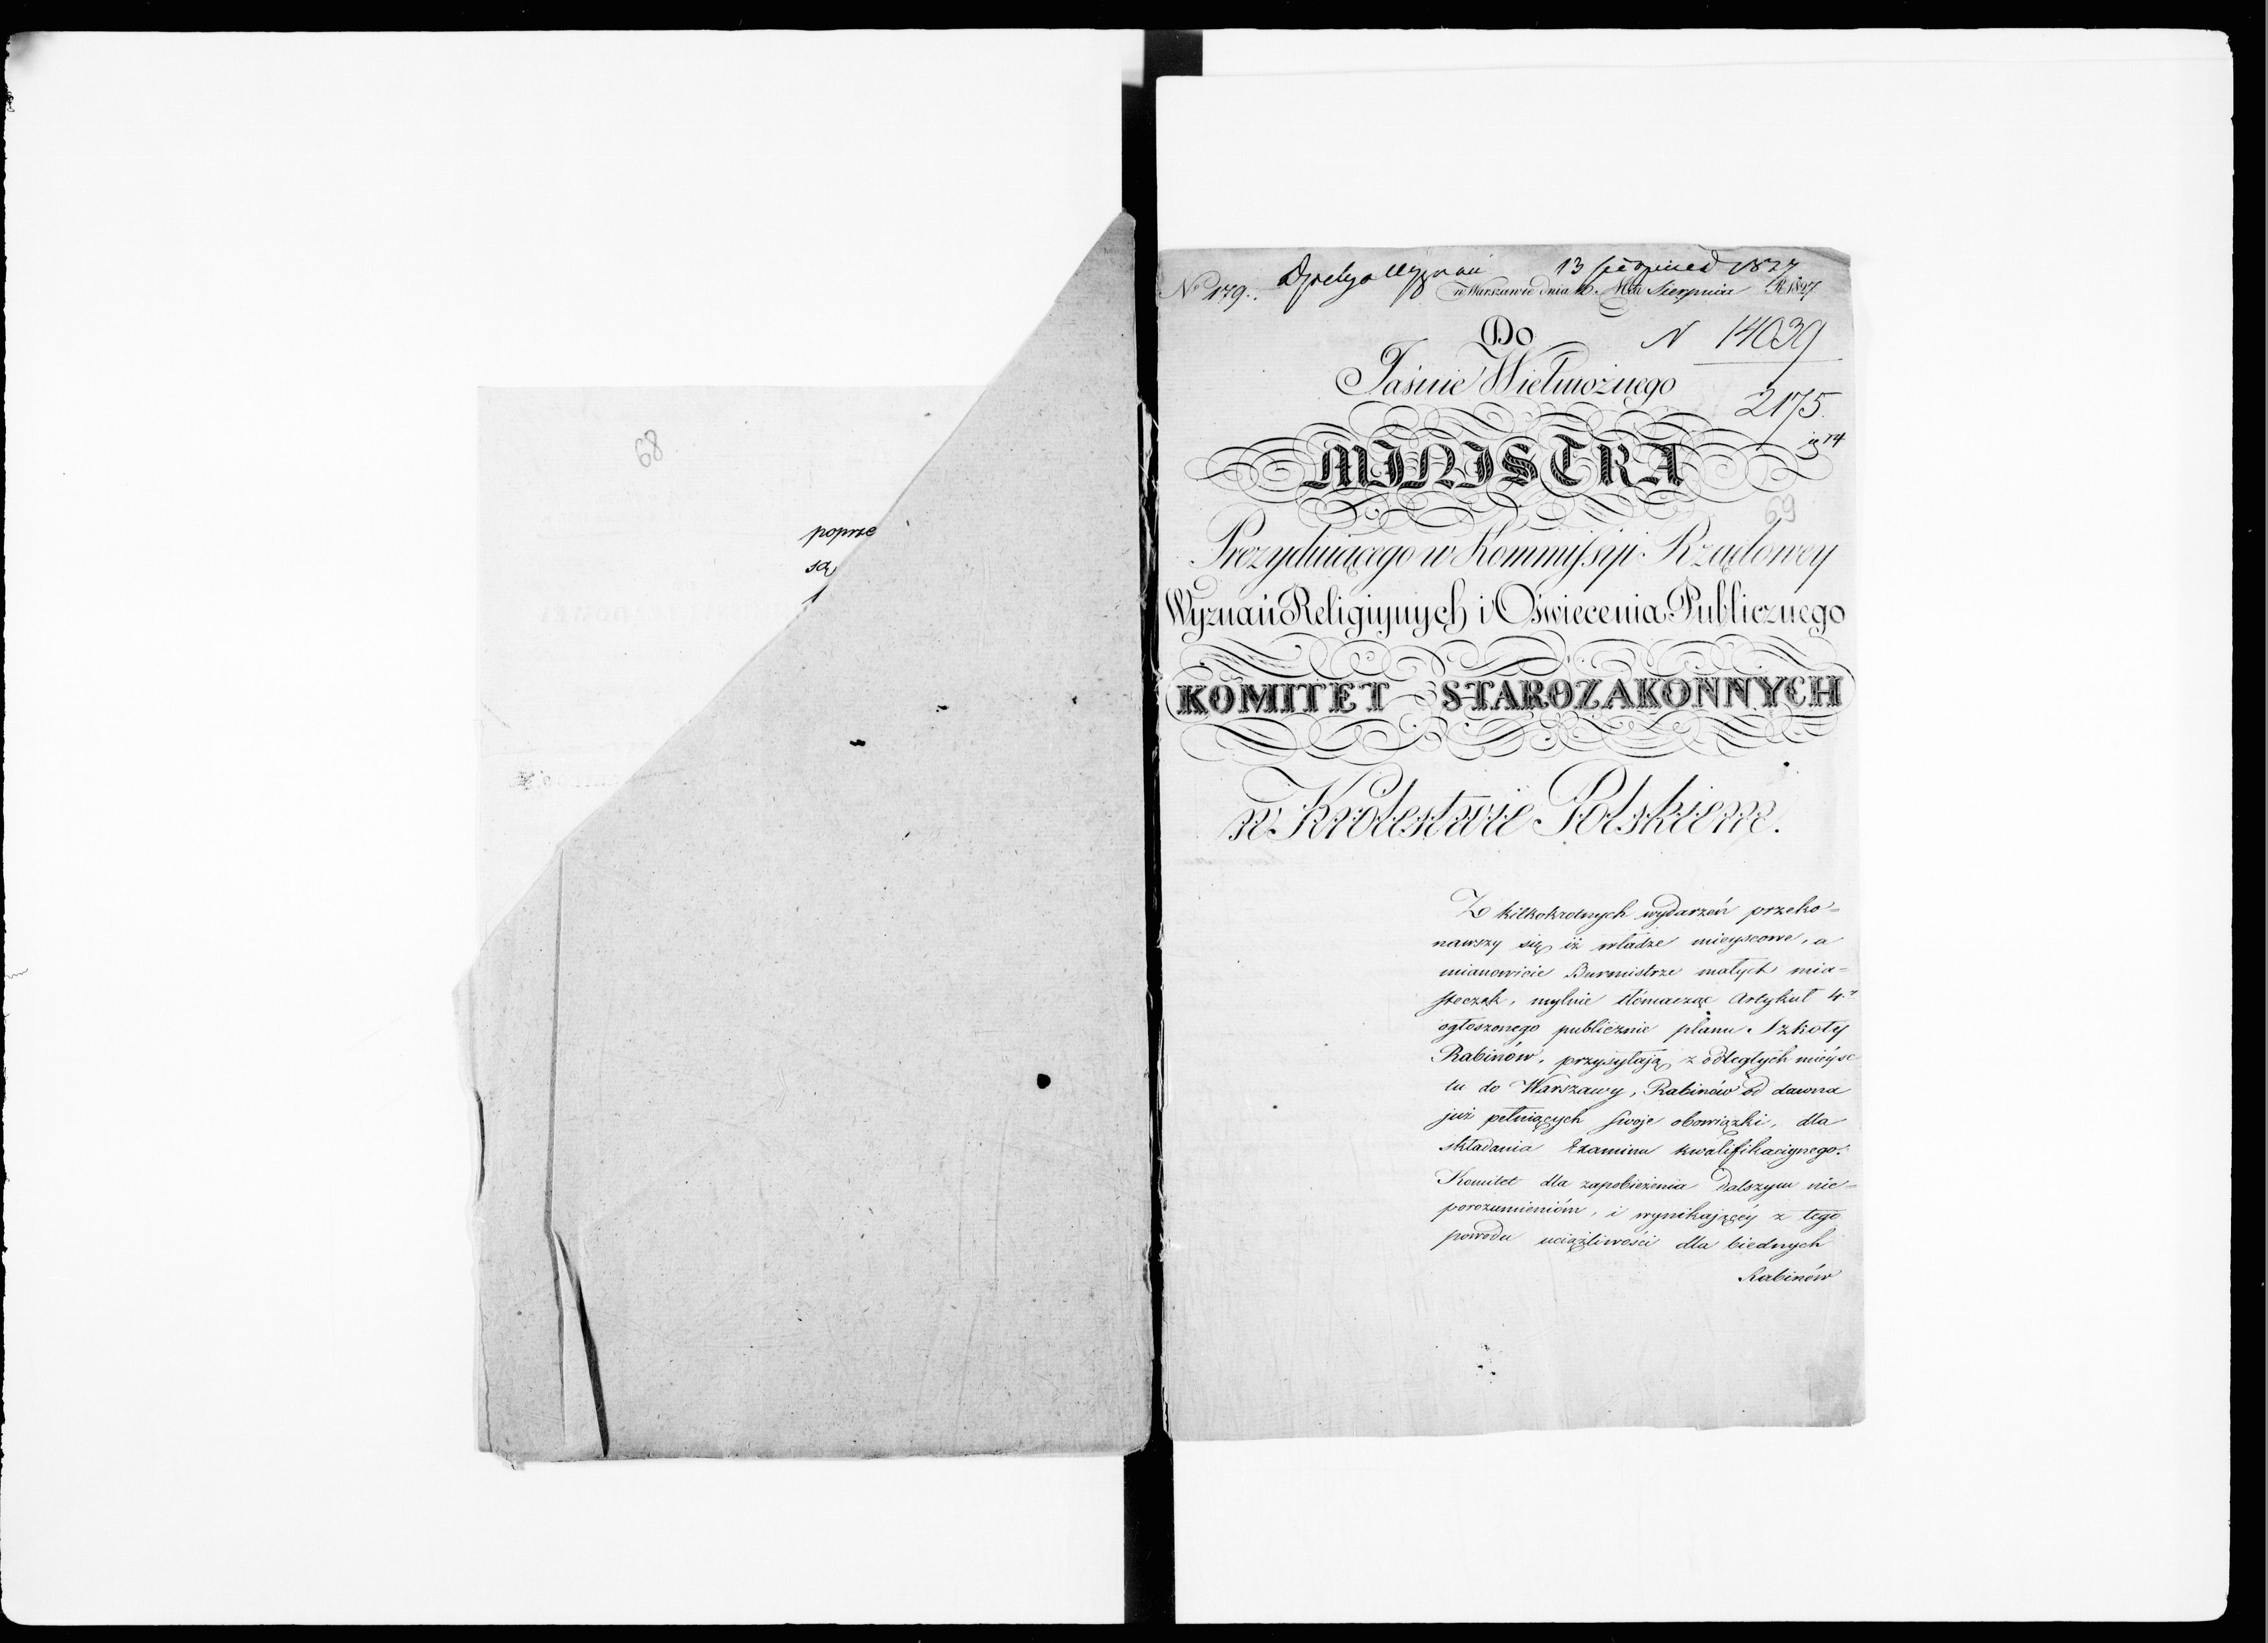 68
poprze
są
13 Sierpnia 1827
No 179.
w Warszawie dnia 10. Mca Sierpnia R. 1827
Do
N 14039
Jaśnie Wielmożnego
2175.
MINISTRA
69
Prezyduiącego w Kommissyi Rządowey
Wyznań Religiynych i Oświecenia Publicznego
KOMITET STAROZAKONNYCH
w Królestwie Polskiem.
Z kilkokrotnych wydarzeń przeko=
nawszy się iż władze mieyscowe, a
mianowicie Burmistrze małych mia=
steczek, mylnie tłómacząc Artykuł 4.
ogłoszonego publicznie planu Szkoły
Rabinów, przysyłają z odległych mieysc
tu do Warszawy, Rabinów od dawna
już pełniących swoje obowiązki, dla
składania Examinu kwalifikacyjnego.
Komitet dla zapobieżenia dalszym nie=
porozumieniom, i wynikającéy z tego
powodu uciążliwości dla biednych
Rabinów